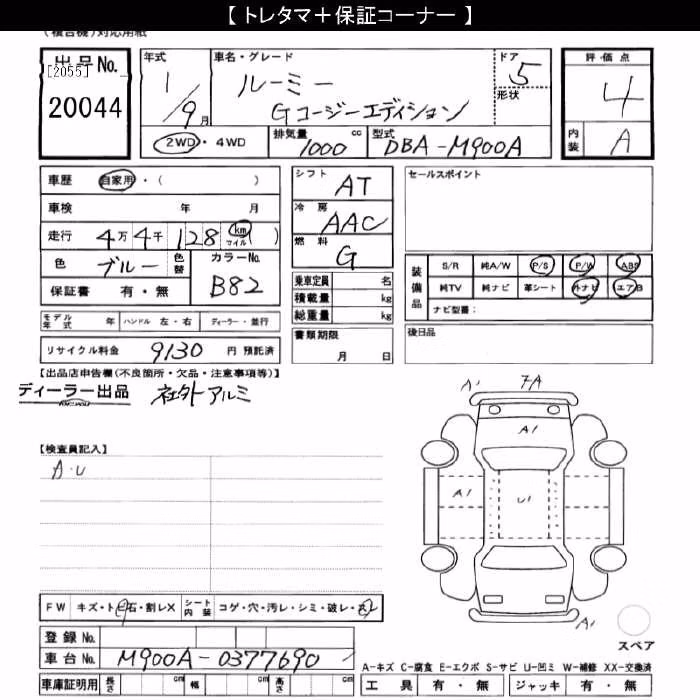 【 トレタマ＋保証コーナー 】
(複合機)対応用紙
出品No. [2055] 20044
年式 1/9月
車名・グレード ルーミー Gコージーエディション
ドア 5
形状
評価点 4
内装 A
2WD・4WD
排気量 1000 cc
型式 DBA-M900A
車歴 自家用・( )
車検 年 月
走行 4万4千128 km マイル ( )
色 ブルー 色替 カラーNo. B82
保証書 有・無
シフト AT
冷房 AAC
燃料 G
乗車定員 名
積載量 kg
総重量 kg
セールスポイント
装備品 S/R 純A/W P/S P/W ABS
純TV 純ナビ 革シート 外ナビ エアB
ナビ型番：
モデル年式 年 ハンドル 左・右 ディーラー・並行
書類期限 月 日
後日品
リサイクル料金 9130 円 預託済
【出品店申告欄(不良箇所・欠品・注意事項等)】
ディーラー出品 社外アルミ
【検査員記入】
A・U
A1 7A
A1
A1 U1
A1
FW キズ・トビ石・割レX シート内装 コゲ・穴・汚レ・シミ・破レ・
スペア
登録No.
車台No. M900A-0377690
A-キズ C-腐食 E-エクボ S-サビ U-凹ミ W-補修 XX-交換済
車庫証明用 長さ cm 幅 cm 高さ cm
工具 有・無 ジャッキ 有・無